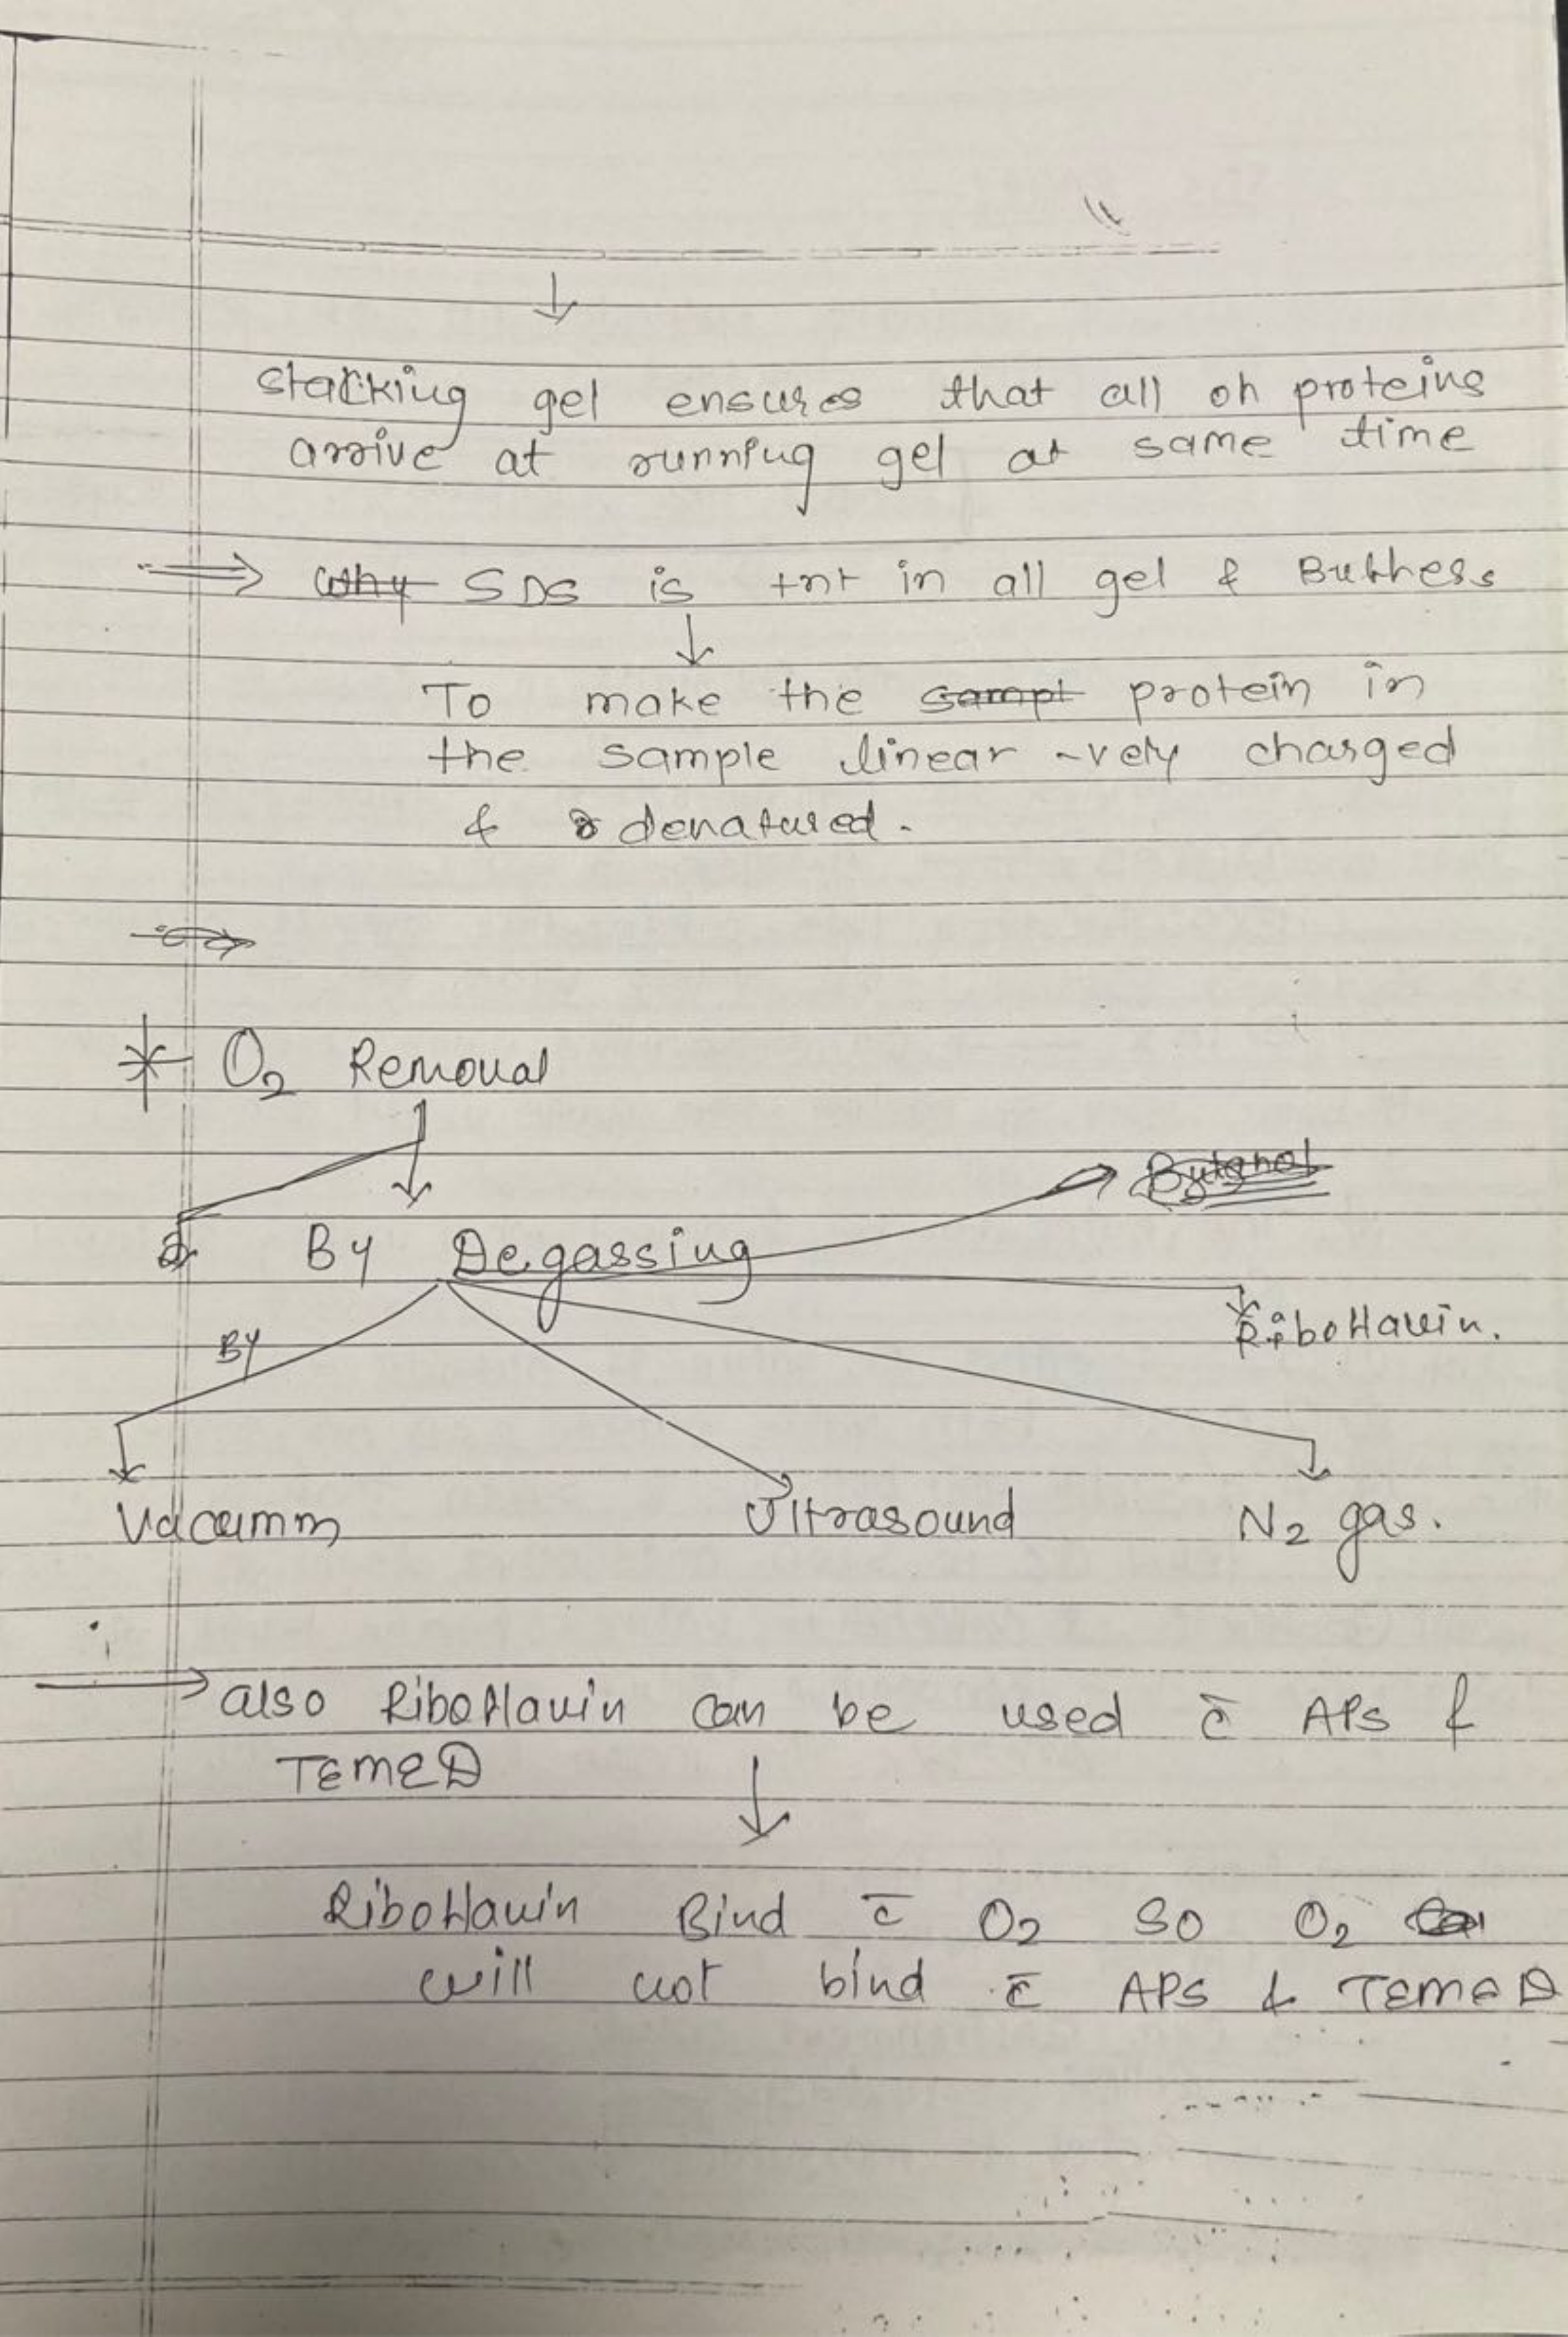 ↓
stacking gel ensures that all of proteins
arrive at running gel at same time
⇒ ~~Why~~ SDS is +nt in all gel & Buffers
↓
To make the ~~sampl~~ protein in
the sample linear -vely charged
& denatured.
* O2 Removal
↓
~~Butanol~~
By Degassing
Riboflavin.
By
Vaccumm Ultrasound N2 gas.
→ also Riboflavin can be used c̄ APS &
TEMED
↓
Riboflavin Bind c̄ O2 SO O2
will not bind c̄ APS & TEMED